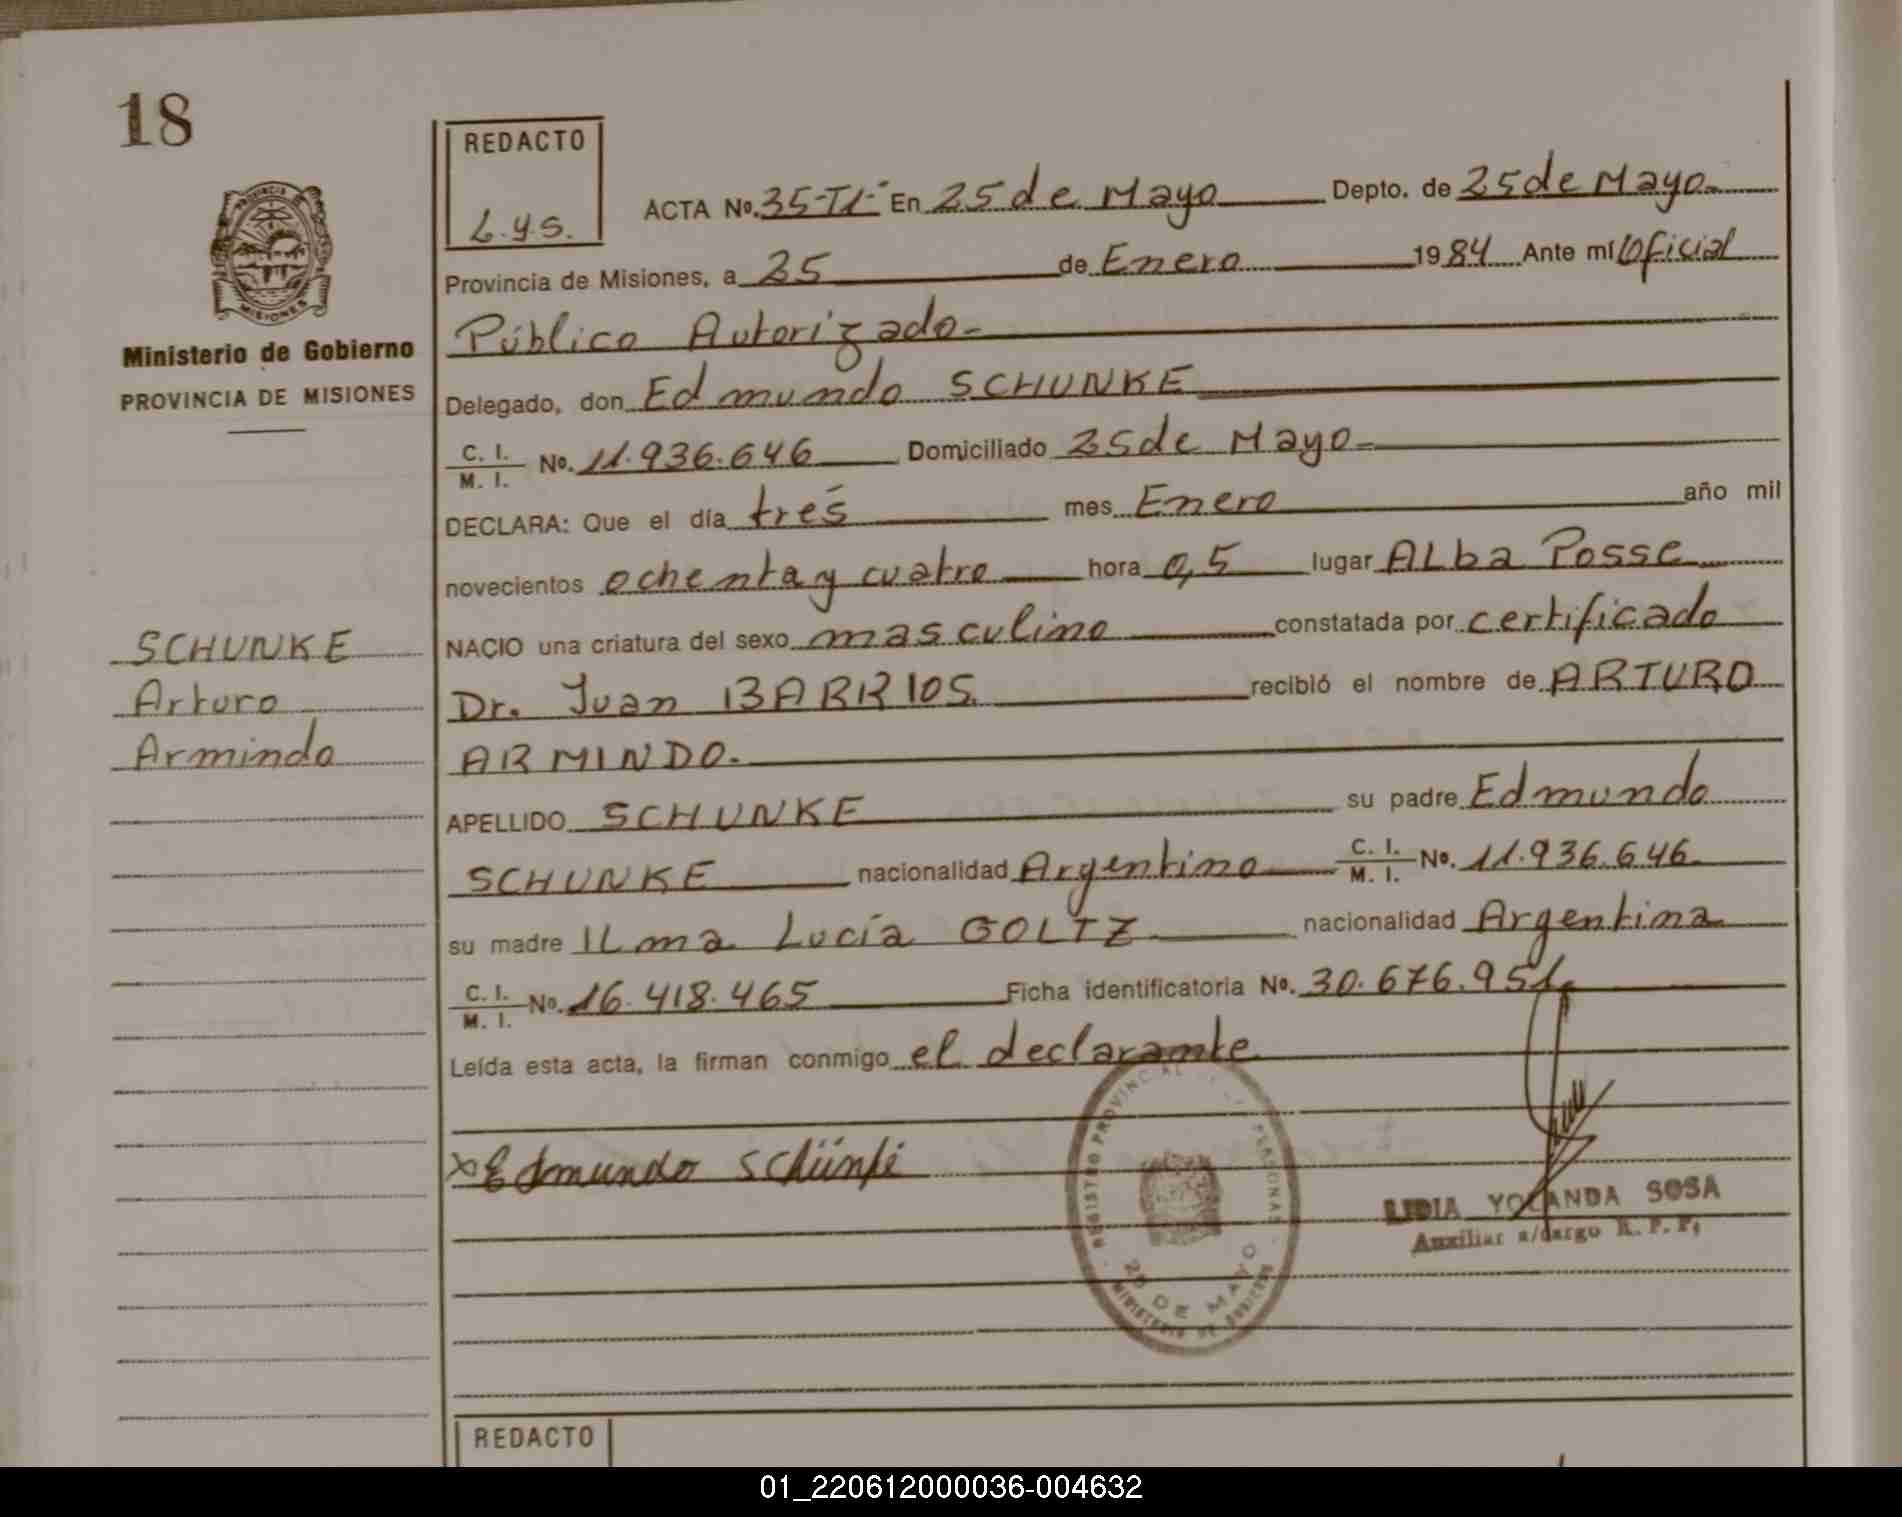 18
PROVINCIA
MISIONES
Ministerio de Gobierno
PROVINCIA DE MISIONES
SCHUNKE
Arturo
Armindo
REDACTO
L.y.s.
ACTA No. 35-T1- En 25 de Mayo Depto. de 25 de Mayo.
Provincia de Misiones, a 25 de Enero 1984 Ante mí Oficial
Público Autorizado-
Delegado, don Edmundo SCHUNKE
C. I. / M. I. No. 11.936.646 Domiciliado 25 de Mayo-
DECLARA: Que el día trés mes Enero año mil
novecientos ochenta y cuatro hora 0,5 lugar ALba Posse
NACIO una criatura del sexo masculino constatada por certificado
Dr. Juan BARRIOS. recibió el nombre de ARTURO
ARMINDO.
APELLIDO SCHUNKE su padre Edmundo
SCHUNKE nacionalidad Argentino C. I. / M. I. No. 11.936.646
su madre ILma Lucía GOLTZ nacionalidad Argentina
C. I. / M. I. No. 16.418.465 Ficha identificatoria No. 30.676.951.
Leída esta acta, la firman conmigo el declarante
x Edmundo Schünke
REGISTRO PROVINCIAL DE LAS PERSONAS
25 DE MAYO
MINISTERIO DE GOBIERNO
LIDIA YOLANDA SOSA
Auxiliar a/cargo R. P. P.
REDACTO
01_220612000036-004632